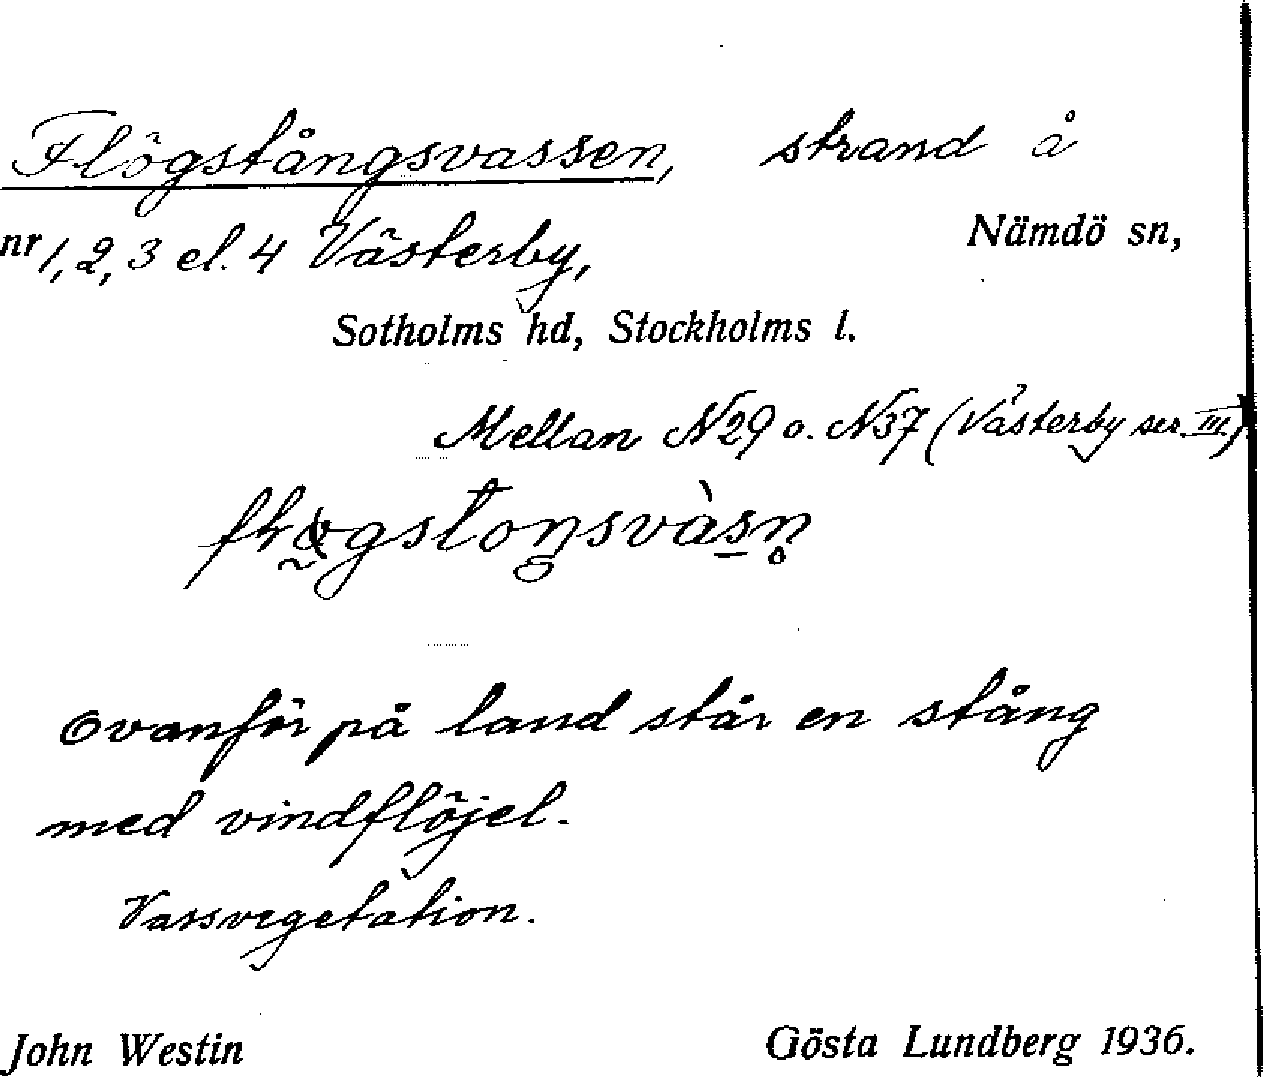 Flögstångsvassen, strand å
nr 1, 2, 3 el. 4 Västerby, Nämdö sn,
Sotholms hd, Stockholms l.
Mellan N29 o. N37 (Västerby ser. III.)
Ovanför på land står en stång
med vindflöjel.
Vassvegetation.
John Westin Gösta Lundberg 1936.